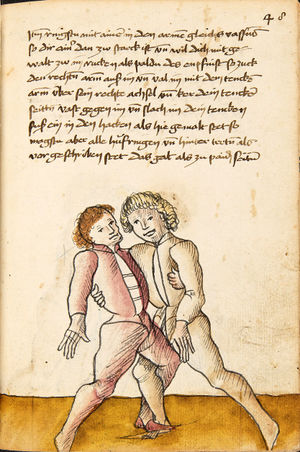 48
Im ringen mit ainē in den armē gleichs vassēs
so dir ainer dan zu starck ist uñ wil dich mit ge-
walt zu im rucken als paldu des enpfinst so zuck
den rechtn arm auß im uñ val im mit dem tencken
arm über sein rechte achsel uñ ker dein tencke
seittn vast gegen im uñ slach im dein tencken
fuß ein in den hacken als hie gemalt stet so
magstu aber alle hüfringen uñ hinter trettn als
vor geschriben stet das gat als zu paid seittn